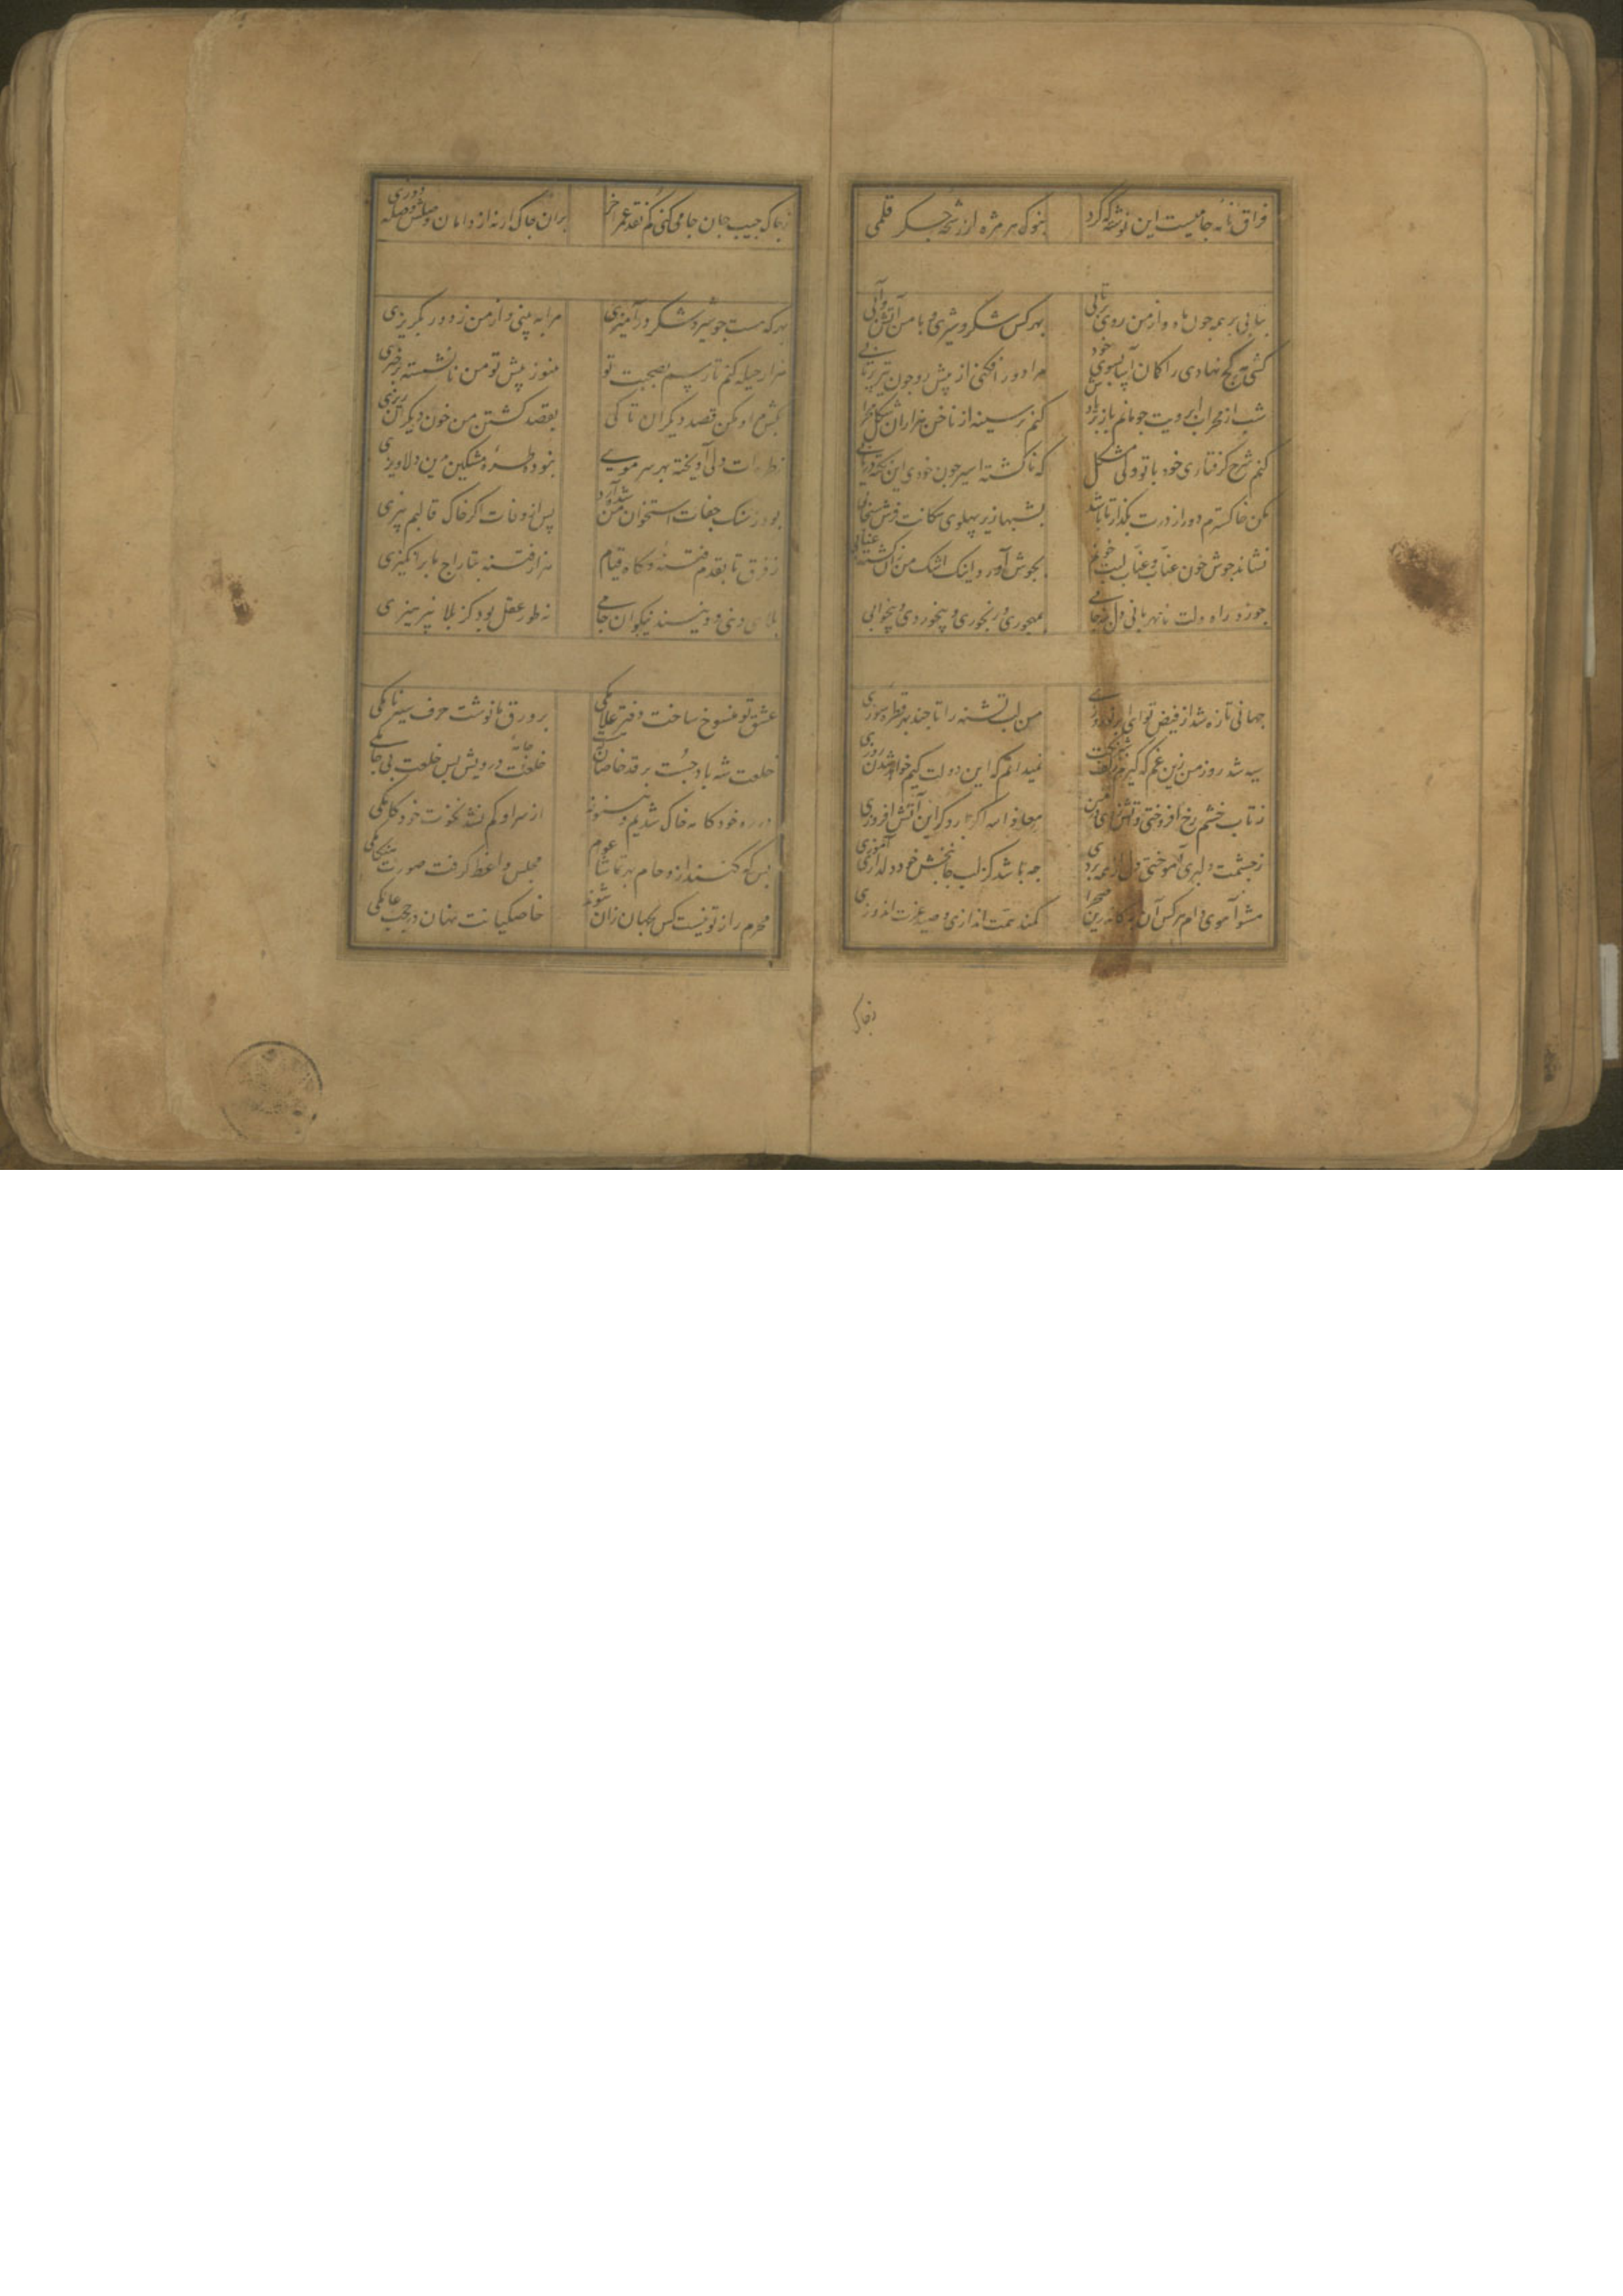 فراق نامه جامیست این نوشته که کرد بنوک هر مژه از رشحه جکر قلمی
بتابی بر همه چون ماه و از من روی برتابی بهر کس شکر و شیری و با من آتش و آبی
کشی کج نهادی را کمان آسا بسوی خود مرا دور افکنی از پیش رو چون تیر پرتابی
شب از محراب ابرویت چو مانم باز یاد کنم بر سینه از ناخن هزاران شکل محرابی
کنم شرح کرفتاری خود با تو ولی مشکل که ناکشته اسیر چون خودی این نکته دریابی
مکن خاکسترم دور از درت بگذار تا باشد بشبها زیر پهلوی سکانت فرش سنجابی
نشاند جوش خون عناب و عناب لبت خونم بجوش آورد اینک اشک من زان کشته عنابی
چو زد راه دلت نامهربانی دل بنه جامی بمهجوری و رنجوری و بیخوردی و بیخوابی
جهانی تازه شد از فیض تو ای ابر نوروزی من لب تشنه را تا چند بهر قطره سوزی
سیه شد روز من زین غم که کیرم زلف شبرنکت نمیدانم که این دولت کیم خواهد شدن روزی
ز تاب خشم رخ افروختی و آتش زدی در من معاذ الله اکر بار دکر این آتش افروزی
ز چشمت دلبری آموختی و دل از همه بردی چه باشد کز لب جانبخش خود دلداری آموزی
مشو آهوی دام هر کس آن به کاندرین صحرا کمند همت اندازی و صید عزت اندوزی
ز چاک
ز چاک جیب جان جامی مکن کم نقد عمر آخر بر آن چاک ار نه از دامان وصلش وصله دوزی
بهر که هست چو شیر و شکر در آمیزی مرا به بینی و از من ز دور بگریزی
هزار حیله کنم تا رسم بصحبت تو هنوز پیش تو من نانشسته برخیزی
بکش مرا و مکن قصد دیکران تا کی بقصد کشتن من خون دیکران ریزی
ز طره ات دلی آویخته بهر سر مویی نبوده طره مشکین بدین دلاویزی
بود ز سنک جفات استخوان من شده آرد پس از وفات اکر خاک قالبم بیزی
ز فرق تا بقدم فتنه و کاه قیام هزار فتنه بتاراج ما برانکیزی
بلای دنیی و دینند نیکوان جامی نه طور عقل بود کز بلا نپرهیزی
عشق تو منسوخ ساخت دفتر علامکی بر ورق ما نوشت حرف سیه نامکی
خلعت شه باد چست بر قد خاصان خلعت درویش بس خلعت بی جامکی
در ره خودکامه خاک شدیم و هنوز از سر او کم نشد نخوت خودکامکی
بس که کنند ازدحام بهر تماشا عوام مجلس واعظ کرفت صورت هنکامکی
محرم راز تو نیست کس بجهان زان شوند خاصکیانت نهان در حجب عامکی